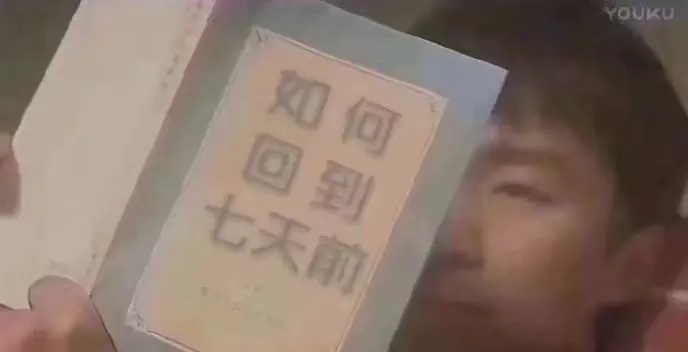 YOUKU
如何
回到
七天前